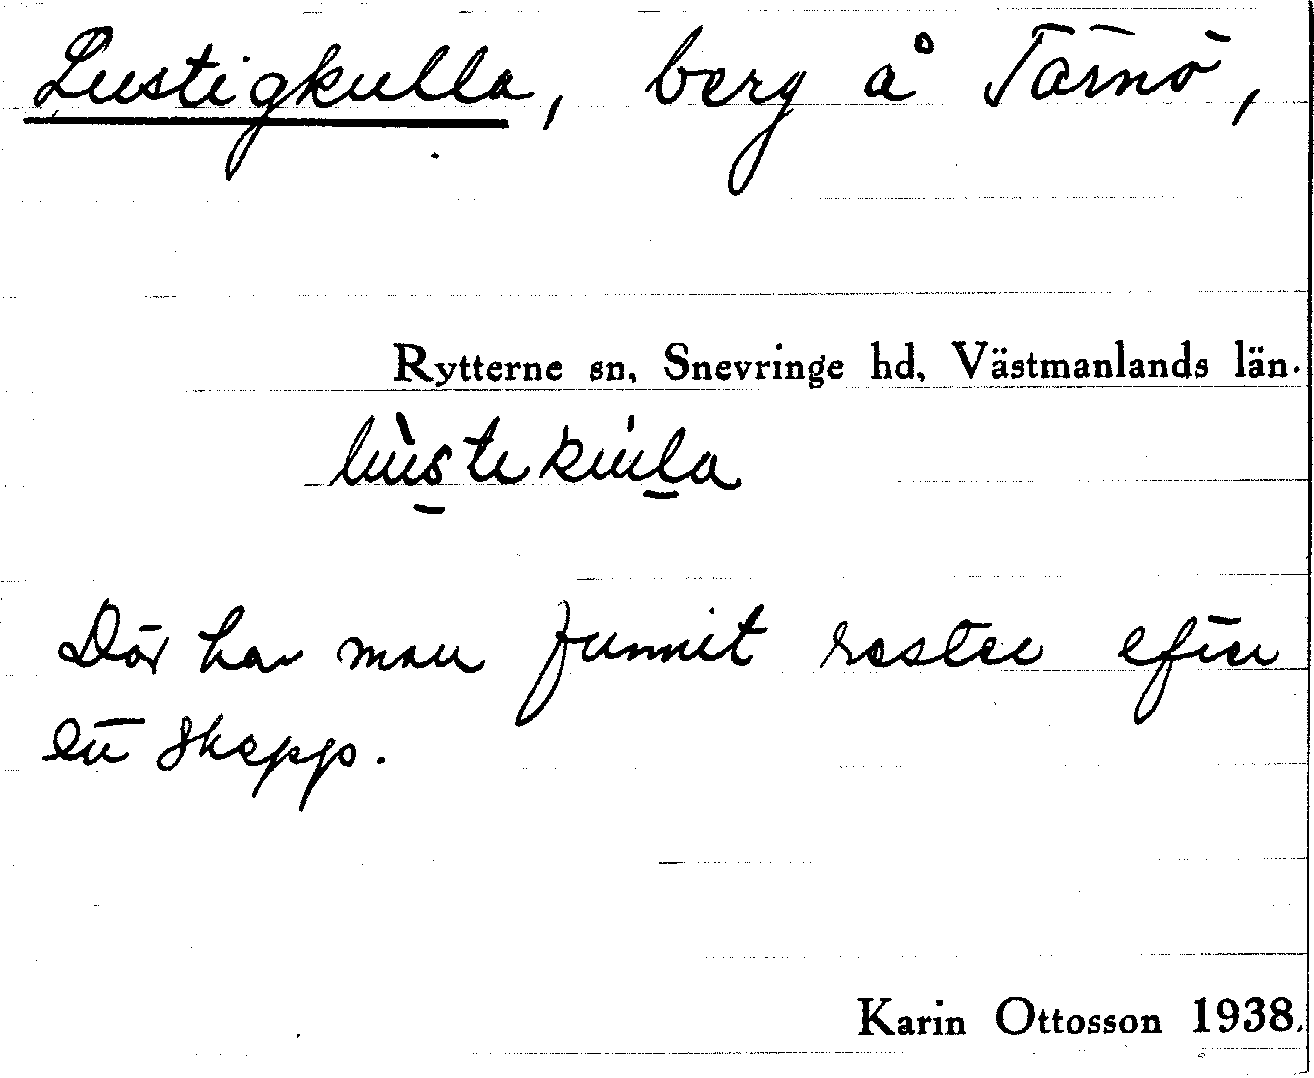 Lustigkulla, berg å Tärnö,
Rytterne sn, Snevringe hd, Västmanlands län.
lùstekula
Där har man funnit rester efter
ett skepp.
Karin Ottosson 1938.